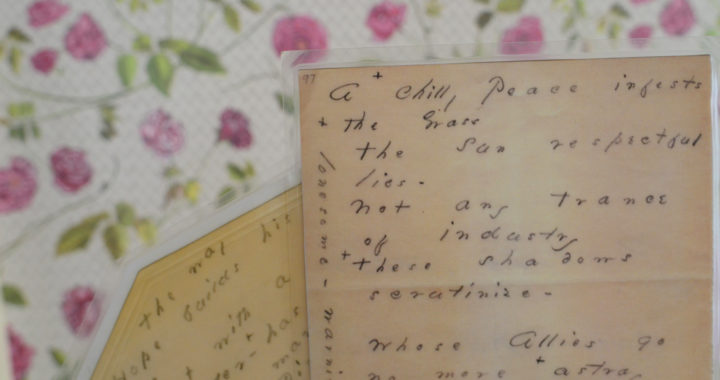 97
A + chilly Peace infests
+ the Grass
the Sun respectful
lies -
Not any trance
of industry
+ these shadows
scrutinize -
Whose Allies go
no more + astra
lonesome -
the way his
builds
with a
has